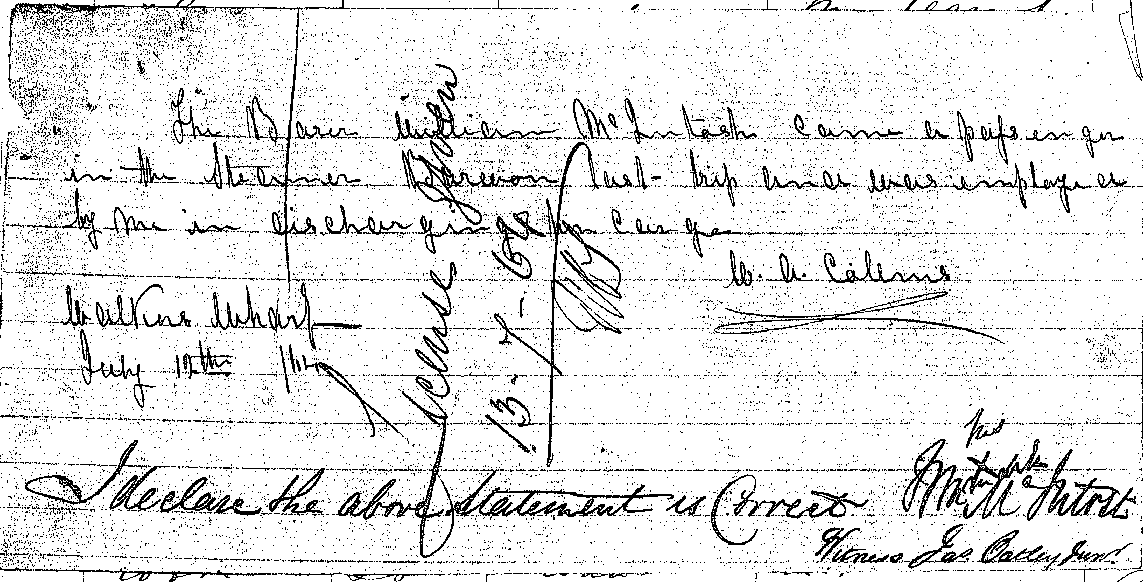 The Bearer William McIntosh came a passenger
in the Steamer Barwon last trip and was employed
by me in discharging her cargo
W. A. Colems
Watkins Wharf
July 12th
License Given
13-7-68
his
mark
Wm McIntosh
I declare the above Statement is Correct
Witness Jas. Oatley Junr